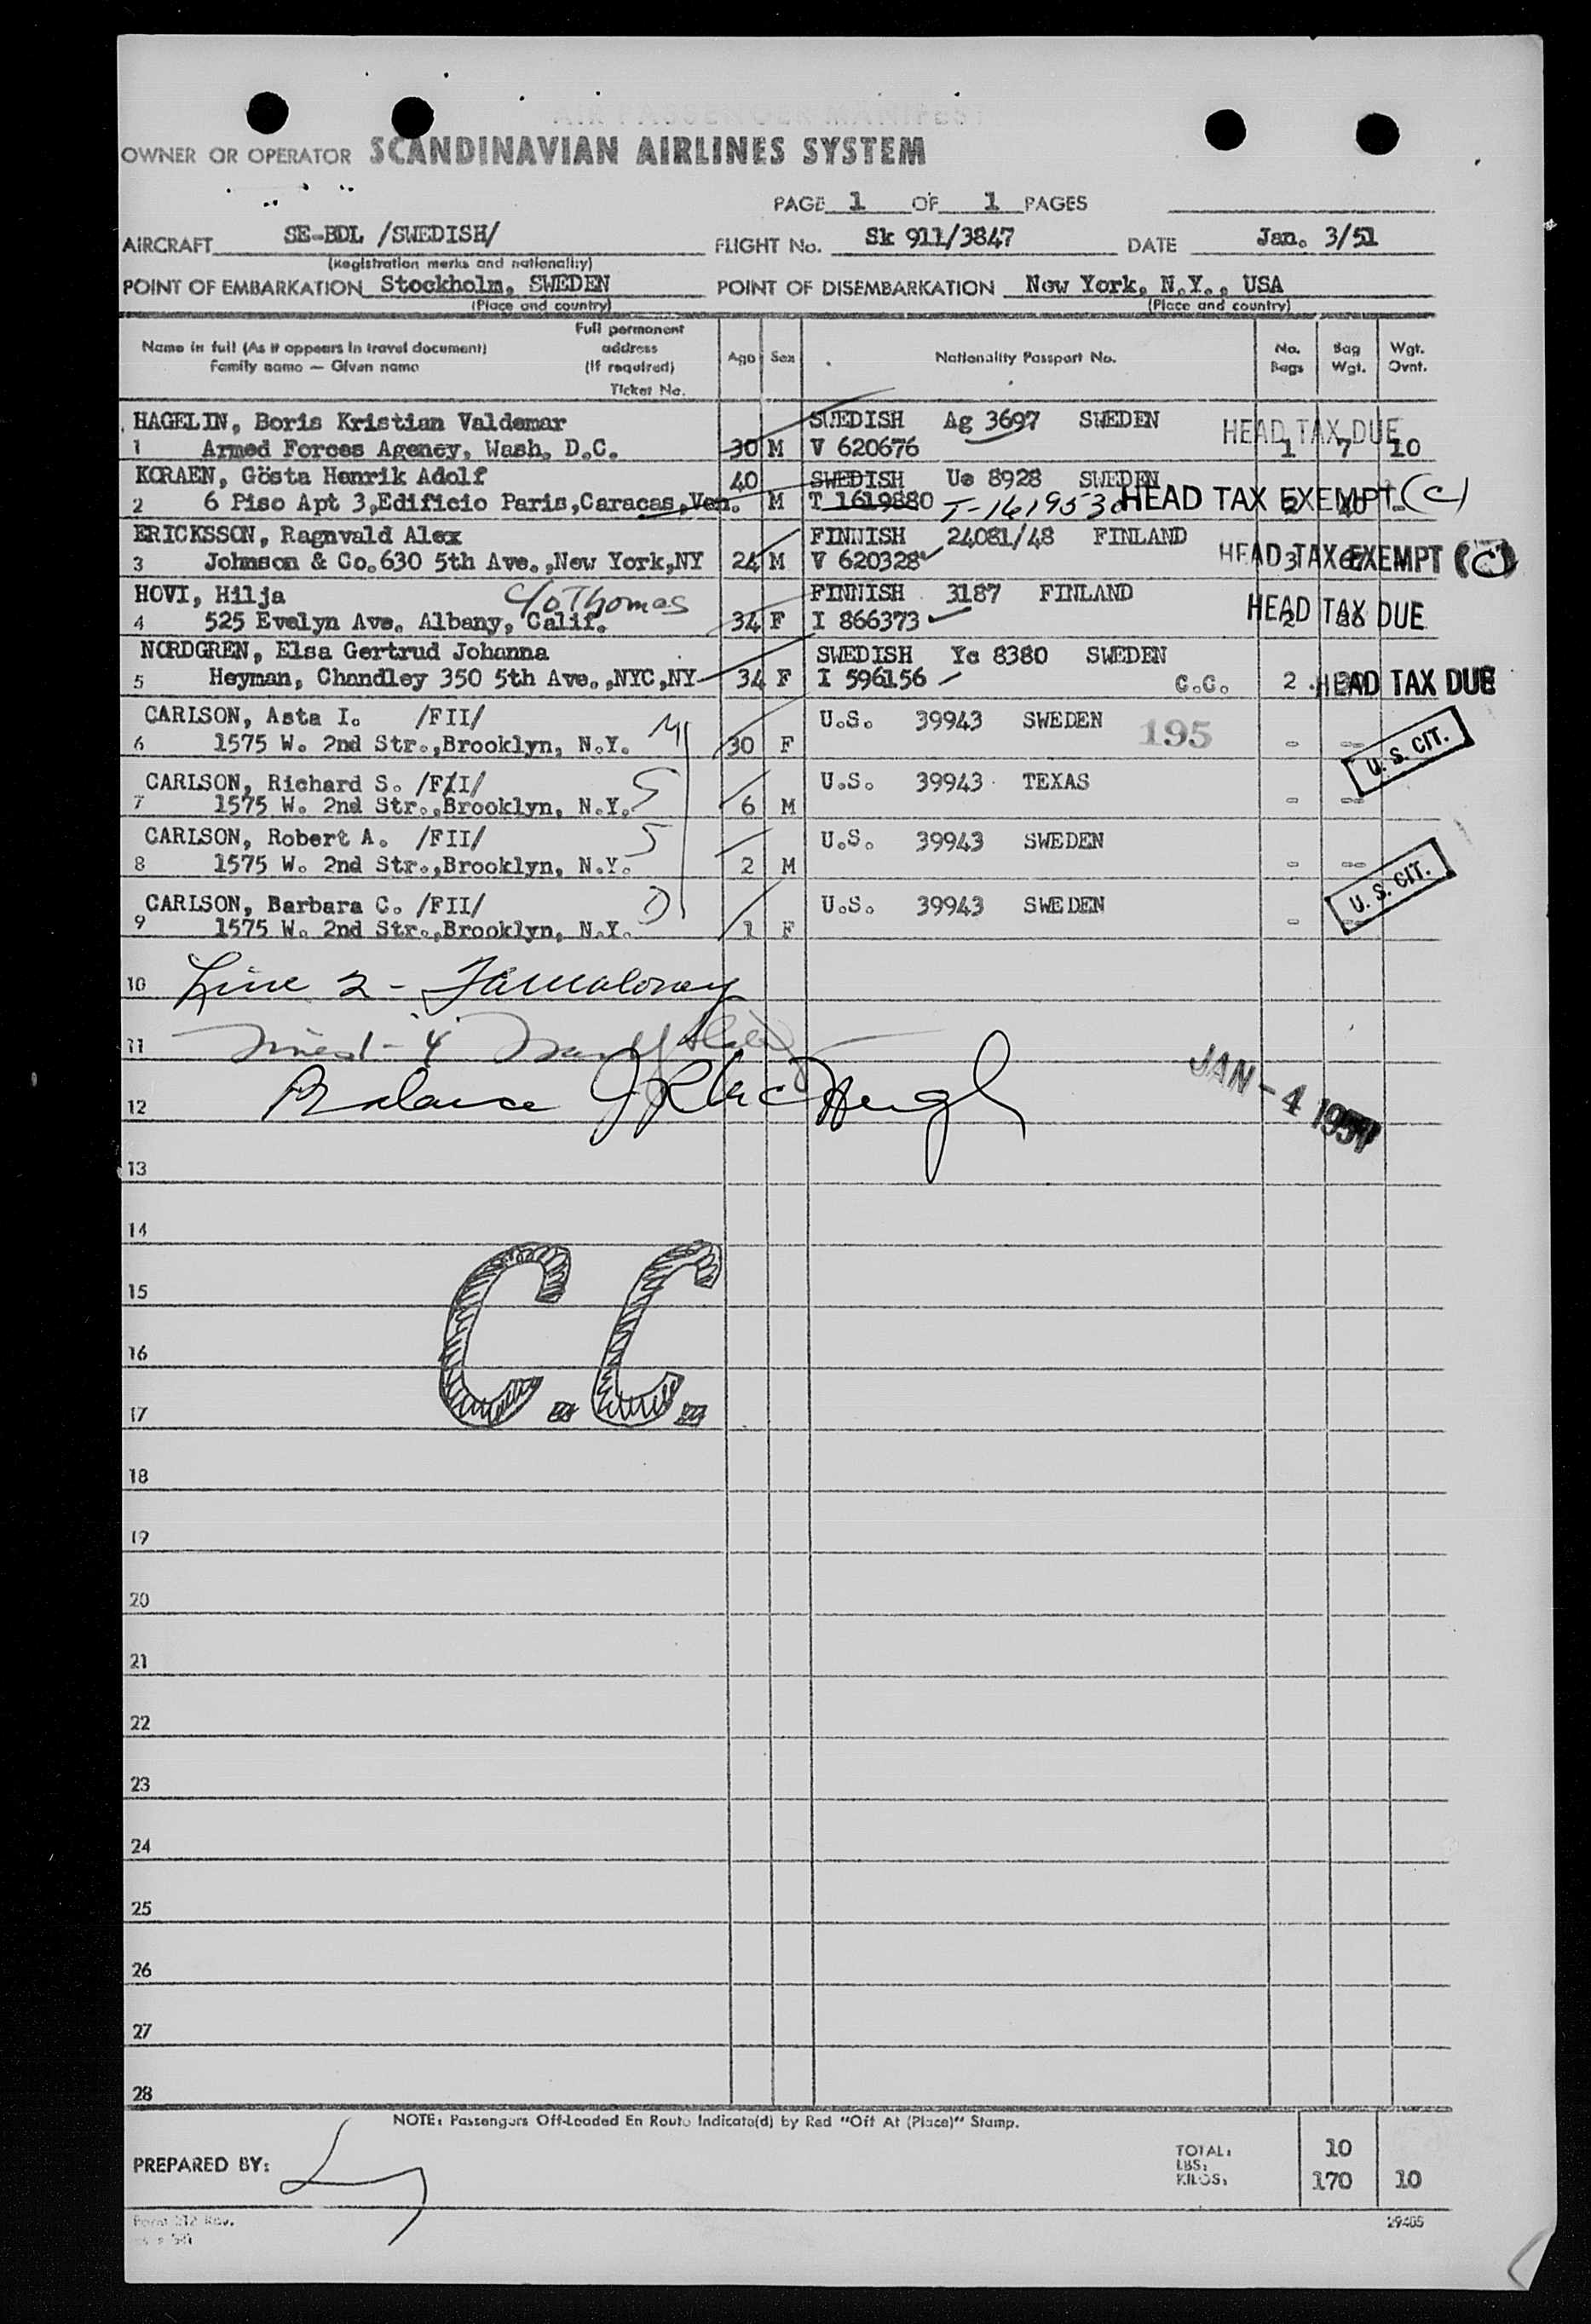 OWNER OR OPERATOR SCANDINAVIAN AIRLINES SYSTEM
PAGE 1 OF 1 PAGES
AIRCRAFT SE-BDL /SWEDISH/ FLIGHT No. Sk 911/3847 DATE Jan. 3/51
(Registration marks and nationality)
POINT OF EMBARKATION Stockholm, SWEDEN POINT OF DISEMBARKATION New York, N.Y., USA
(Place and country) (Place and country)
Name in full (As it appears in travel document) Full permanent address (If required) Age Sex Nationality Passport No. No. Bags Bag Wgt. Wgt. Ovnt.
Family name — Given name Ticket No.
HAGELIN, Boris Kristian Valdemar SWEDISH Ag 3697 SWEDEN HEAD TAX DUE
1 Armed Forces Agency, Wash, D.C. 30 M V 620676 1 7 10
KORAEN, Gösta Henrik Adolf 40 SWEDISH Ue 8928 SWEDEN
2 6 Piso Apt 3,Edificio Paris,Caracas,Ven. M T 1619880 T-1619530 HEAD TAX EXEMPT (C) 2 40 -
ERICKSSON, Ragnvald Alex FINNISH 24081/48 FINLAND
3 Johnson & Co.630 5th Ave.,New York,NY 24 M V 620328 HEAD TAX EXEMPT (C) 3
HOVI, Hilja c/o Thomas FINNISH 3187 FINLAND
4 525 Evelyn Ave. Albany, Calif. 34 F I 866373 HEAD TAX DUE 2
NORDGREN, Elsa Gertrud Johanna SWEDISH Ye 8380 SWEDEN
5 Heyman, Chandley 350 5th Ave.,NYC,NY 34 F I 596156 C.C. 2 HEAD TAX DUE
CARLSON, Asta I. /FII/ M U.S. 39943 SWEDEN 195
6 1575 W. 2nd Str.,Brooklyn, N.Y. 30 F - -- U. S. CIT.
CARLSON, Richard S. /FII/ S U.S. 39943 TEXAS
7 1575 W. 2nd Str.,Brooklyn, N.Y. 6 M - --
CARLSON, Robert A. /FII/ S U.S. 39943 SWEDEN
8 1575 W. 2nd Str.,Brooklyn, N.Y. 2 M - --
CARLSON, Barbara C. /FII/ D U.S. 39943 SWEDEN U. S. CIT.
9 1575 W. 2nd Str.,Brooklyn, N.Y. 1 F - --
10 Line 2 -
11 - 4
12 Balance JR MacHugh JAN - 4 1951
13
14
15 C.C.
16
17
18
19
20
21
22
23
24
25
26
27
28
NOTE: Passengers Off-Loaded En Route Indicate(d) by Red "Off At (Place)" Stamp.
PREPARED BY: TOTAL: 10
LBS:
KILOS: 170 10
Form 212 Rev. 29405